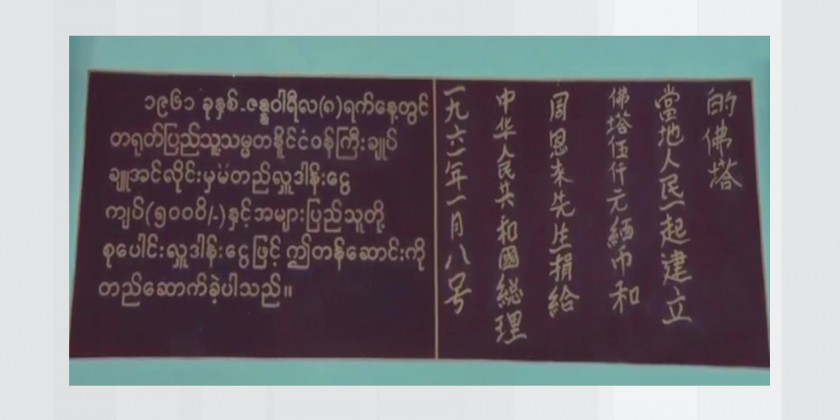 ၁၉၆၁ ခုနှစ်.ဇန္နဝါရီလ(၈)ရက်နေ့တွင်
တရုတ်ပြည်သူ့သမ္မတနိုင်ငံဝန်ကြီးချုပ်
ချူအင်လိုင်းမှမတည်လှူဒါန်းငွေ
ကျပ်(၅၀၀၀ိ/.)နှင့်အများပြည်သူတို့
စုပေါင်းလှူဒါန်းငွေဖြင့် ဤတန်ဆောင်းကို
တည်ဆောက်ခဲ့ပါသည်။
一九六一年一月八号
中华人民共和國総理
周恩来先生捐給
佛塔伍仟元緬币和
當地人民一起建立
的佛塔